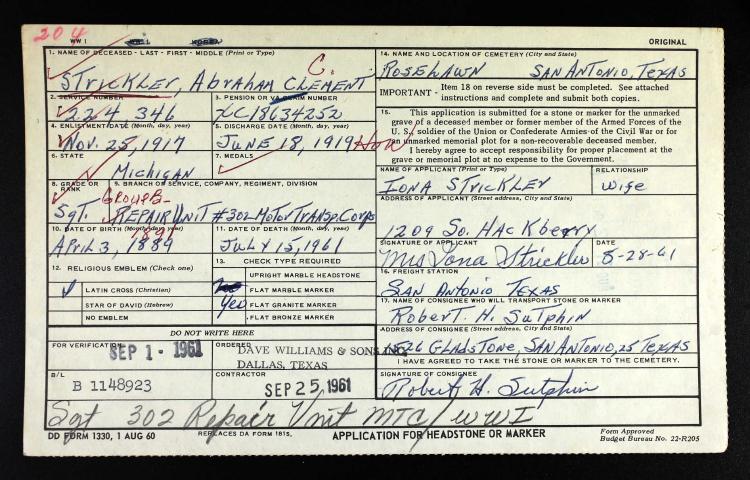 204
WW I WWII KOREA ORIGINAL
1. NAME OF DECEASED - LAST - FIRST - MIDDLE (Print or Type)
C.
STRICKLER, ABRAHAM CLEMENT
2. SERVICE NUMBER
224 346
3. PENSION OR VA CLAIM NUMBER
XC18634252
4. ENLISTMENT DATE (Month, day, year)
NOV. 25, 1917
5. DISCHARGE DATE (Month, day, year)
JUNE 18, 1919 Hon
6. STATE
MICHIGAN
7. MEDALS
8. GRADE OR RANK
Sgt.
9. BRANCH OF SERVICE, COMPANY, REGIMENT, DIVISION
GROUP B-
REPAIR UNIT #302 MOTOR TRANSP. CORPS
10. DATE OF BIRTH (Month, day, year)
1891
APRIL 3, 1889
11. DATE OF DEATH (Month, day, year)
JULY 15, 1961
12. RELIGIOUS EMBLEM (Check one)
LATIN CROSS (Christian)
STAR OF DAVID (Hebrew)
NO EMBLEM
13. CHECK TYPE REQUIRED
UPRIGHT MARBLE HEADSTONE
FLAT MARBLE MARKER
Yes FLAT GRANITE MARKER
FLAT BRONZE MARKER
DO NOT WRITE HERE
FOR VERIFICATION
SEP 1 - 1961
ORDERED
DAVE WILLIAMS & SONS INC.
DALLAS, TEXAS
B/L
B 1148923
CONTRACTOR
SEP 25 1961
14. NAME AND LOCATION OF CEMETERY (City and State)
ROSELAWN SAN ANTONIO, TEXAS
IMPORTANT - Item 18 on reverse side must be completed. See attached
instructions and complete and submit both copies.
15. This application is submitted for a stone or marker for the unmarked
grave of a deceased member or former member of the Armed Forces of the
U. S., soldier of the Union or Confederate Armies of the Civil War or for
an unmarked memorial plot for a non-recoverable deceased member.
I hereby agree to accept responsibility for proper placement at the
grave or memorial plot at no expense to the Government.
NAME OF APPLICANT (Print or Type)
IONA STRICKLER
RELATIONSHIP
Wife
ADDRESS OF APPLICANT (Street address, City and State)
1209 So. HACKberry
SIGNATURE OF APPLICANT
Mrs Iona Strickler
DATE
8-28-61
16. FREIGHT STATION
SAN ANTONIO TEXAS
17. NAME OF CONSIGNEE WHO WILL TRANSPORT STONE OR MARKER
Robert. H. Sutphin
ADDRESS OF CONSIGNEE (Street address, City and State)
1526 GLADSTONE, SAN ANTONIO, 25 TEXAS
I HAVE AGREED TO TAKE THE STONE OR MARKER TO THE CEMETERY.
SIGNATURE OF CONSIGNEE
Robert H. Sutphin
Sgt 302 Repair Unit MTC / WWI
DD FORM 1330, 1 AUG 60 REPLACES DA FORM 1815, APPLICATION FOR HEADSTONE OR MARKER
Form Approved
Budget Bureau No. 22-R205